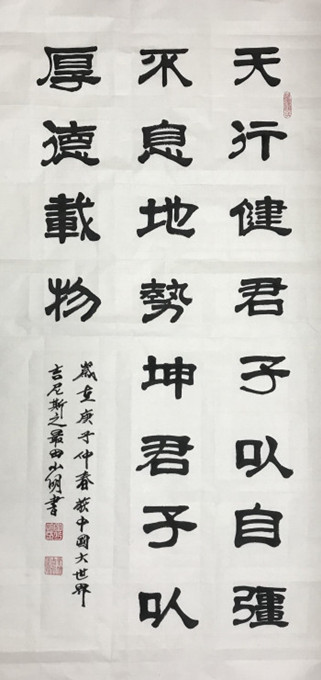 天行健君子以自彊
不息地勢坤君子以
厚德載物
歲在庚子仲春获中國大世界
吉尼斯之最田小明書